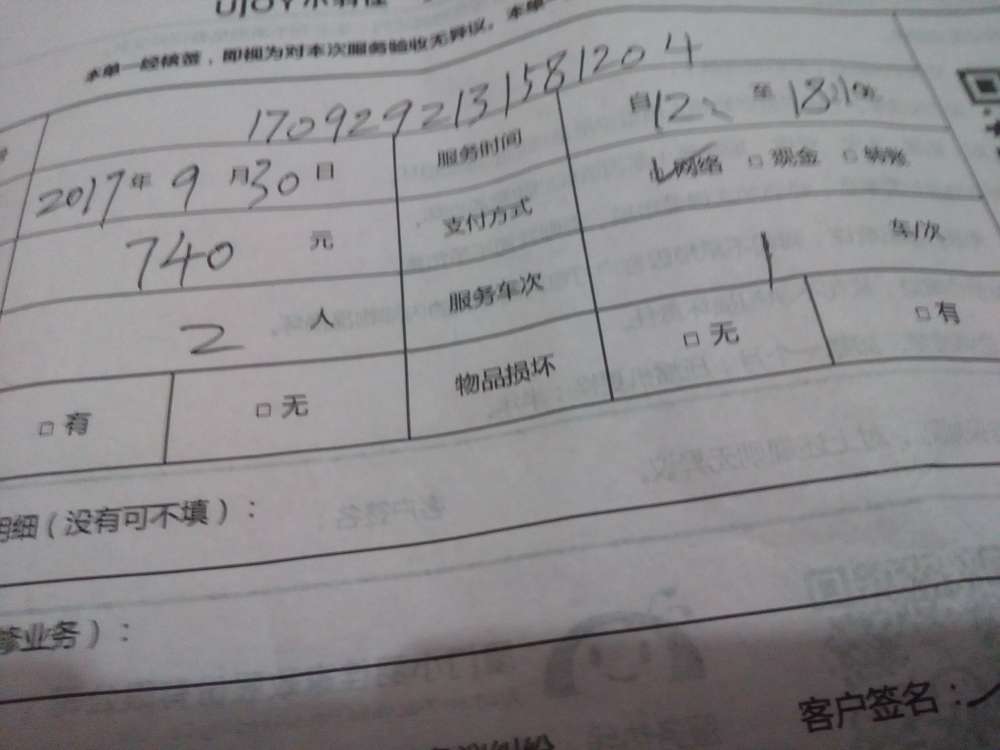 本单一经核签，即视为对本次服务验收无异议。本单一
1709292131581204
2017年9月30日 服务时间 自12: 至18:10
740元 支付方式 网络 □现金 □转账
2人 服务车次 1 车/次
□有 □无 物品损坏 □无 □有
明细（没有可不填）：
业务）：
客户签名：